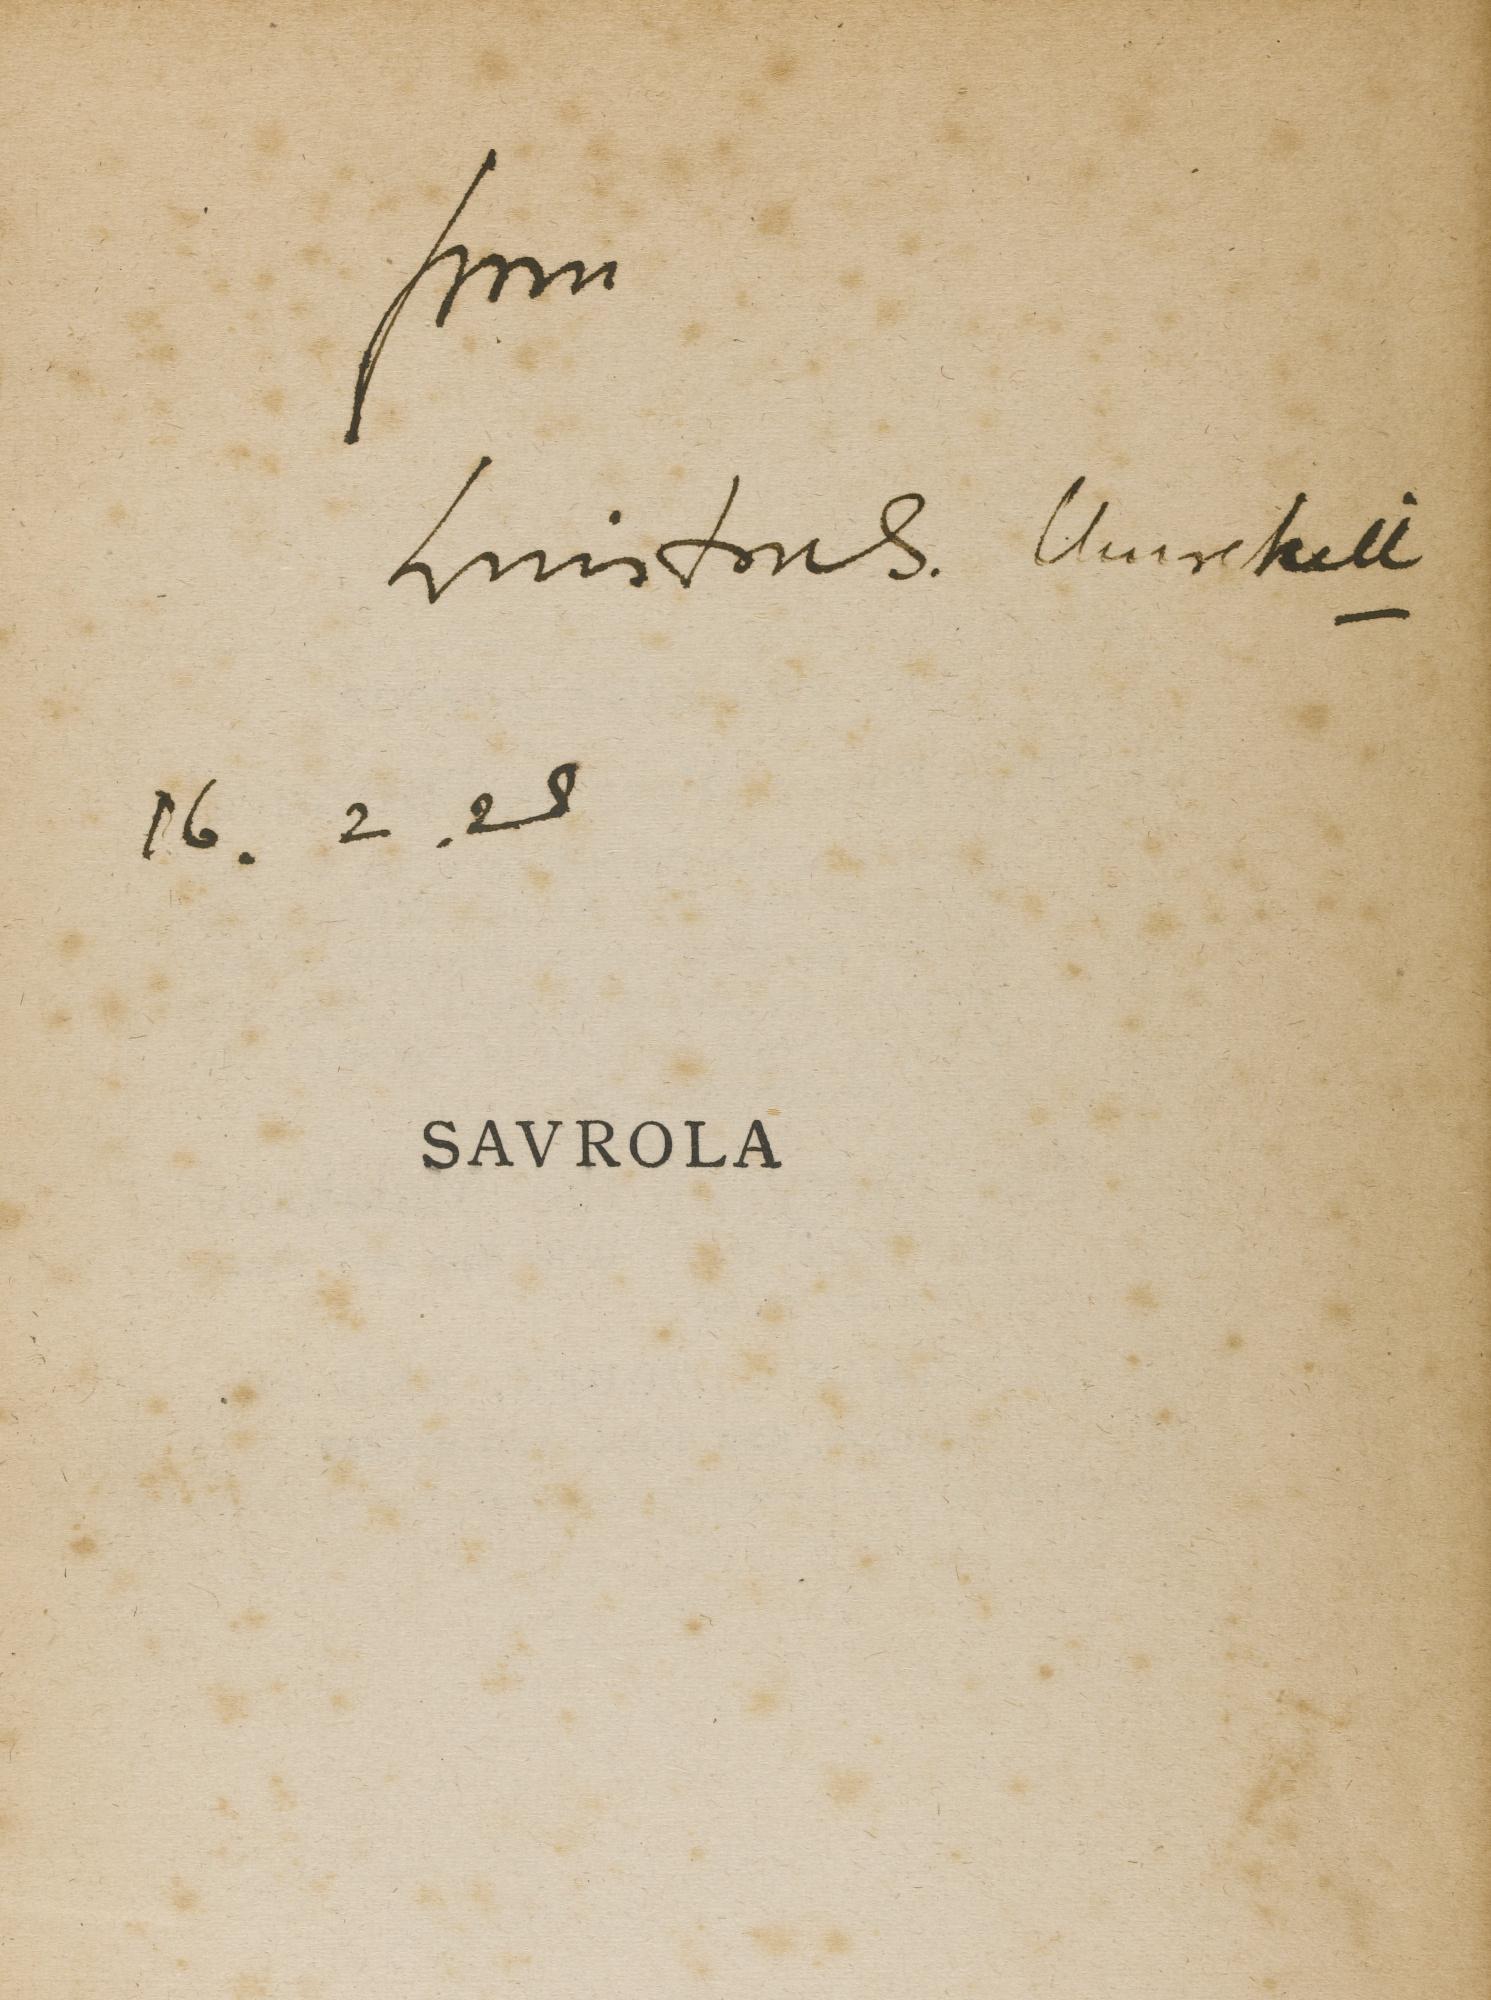 from
Winston S. Churchill
16. 2. 28
SAVROLA